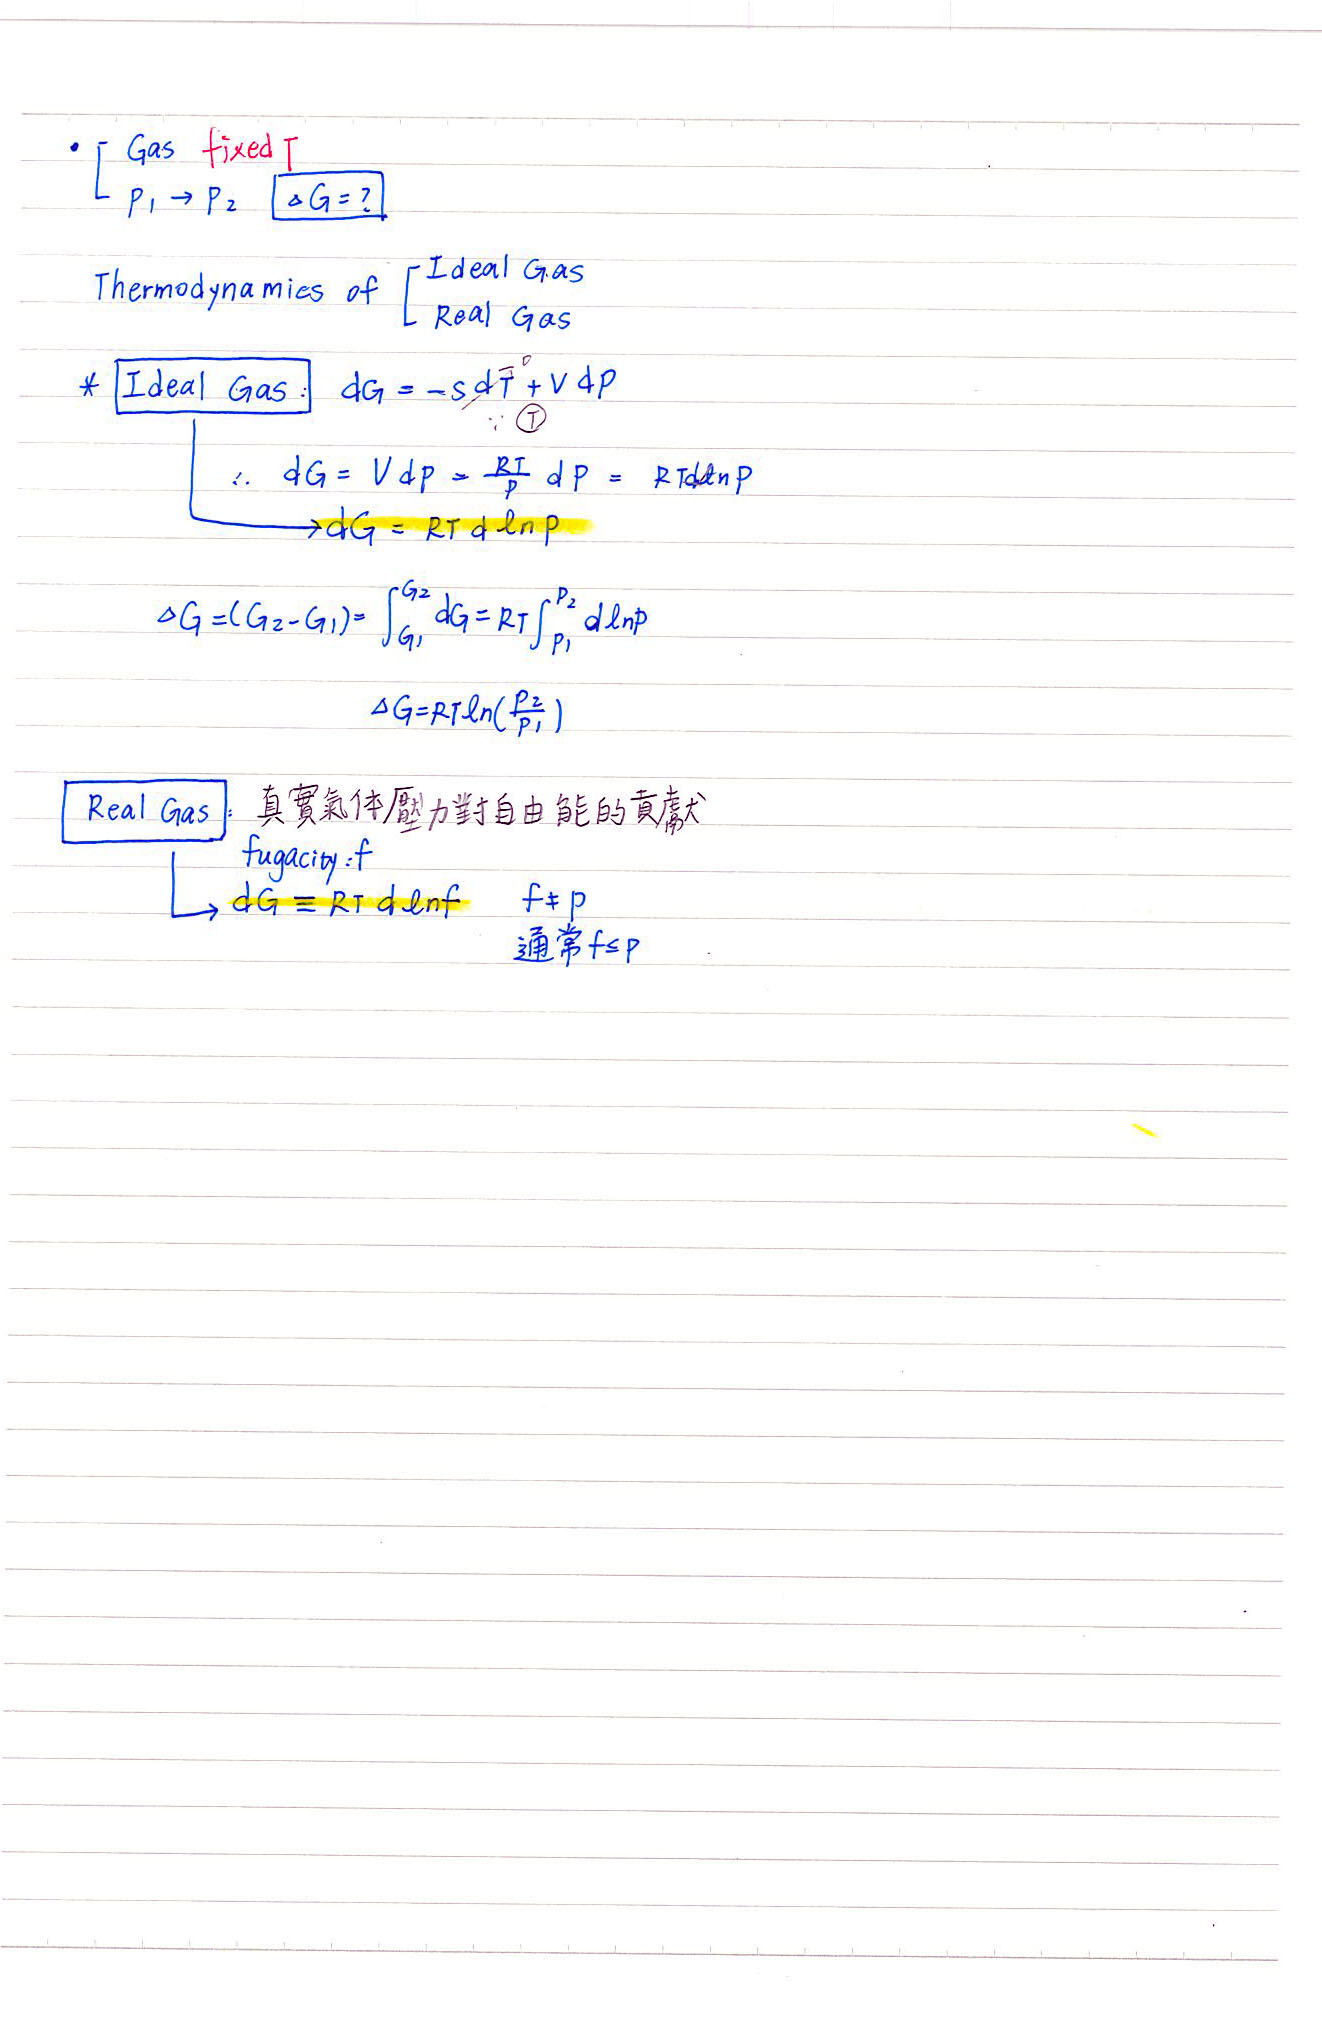 • Gas fixed T
P₁ → P₂ ΔG = ?
Thermodynamics of Ideal Gas
Real Gas
* Ideal Gas: dG = -SdT⁰ + VdP
∵ Ⓣ
∴ dG = VdP = RT/P dP = RTdlnP
→ dG = RT d lnP
ΔG = (G₂-G₁) = ∫_{G₁}^{G₂} dG = RT∫_{P₁}^{P₂} d lnP
ΔG = RTln(P₂/P₁)
Real Gas: 真實氣体壓力對自由能的貢獻
fugacity: f
→ dG ≡ RT d lnf f ≠ p
通常 f ≤ P